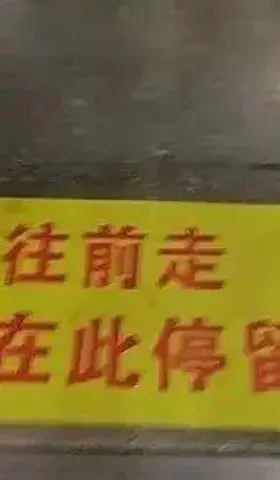 往前走
在此停留